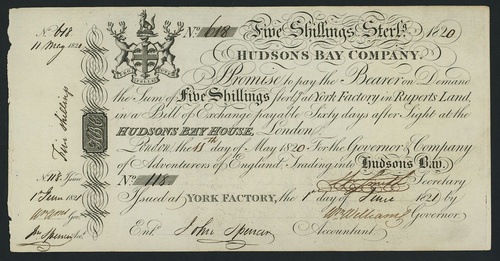 No 618
11 May 1820
No 618 Five Shillings Sterlg. 1820
HUDSONS BAY COMPANY.
I Promise to pay the Bearer on Demand
the Sum of Five Shillings Sterlg at York Factory in Ruperts Land,
in a Bill of Exchange payable Sixty days after Sight at the
HUDSONS BAY HOUSE, London.
London the 11th day of May 1820 For the Governor & Company
of Adventurers of England, Trading into Hudsons Bay.
No 118 Secretary
Issued at YORK FACTORY, the 1st day of June 1821
Wm Williams Governor
Entd. John Spencer Accountant.
Five Shillings
No 118
1st June 1821
Wm Wms Govr
Jn Spencer